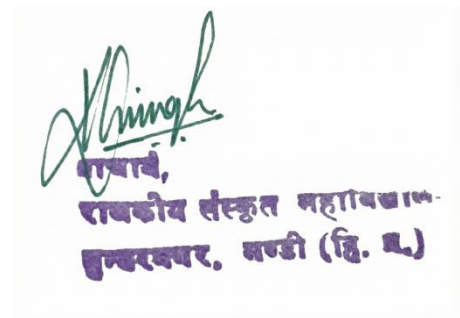 प्राचार्य,
राजकीय संस्कृत महाविद्याल
सुन्दरनगर, मण्डी (हि. प्र.)